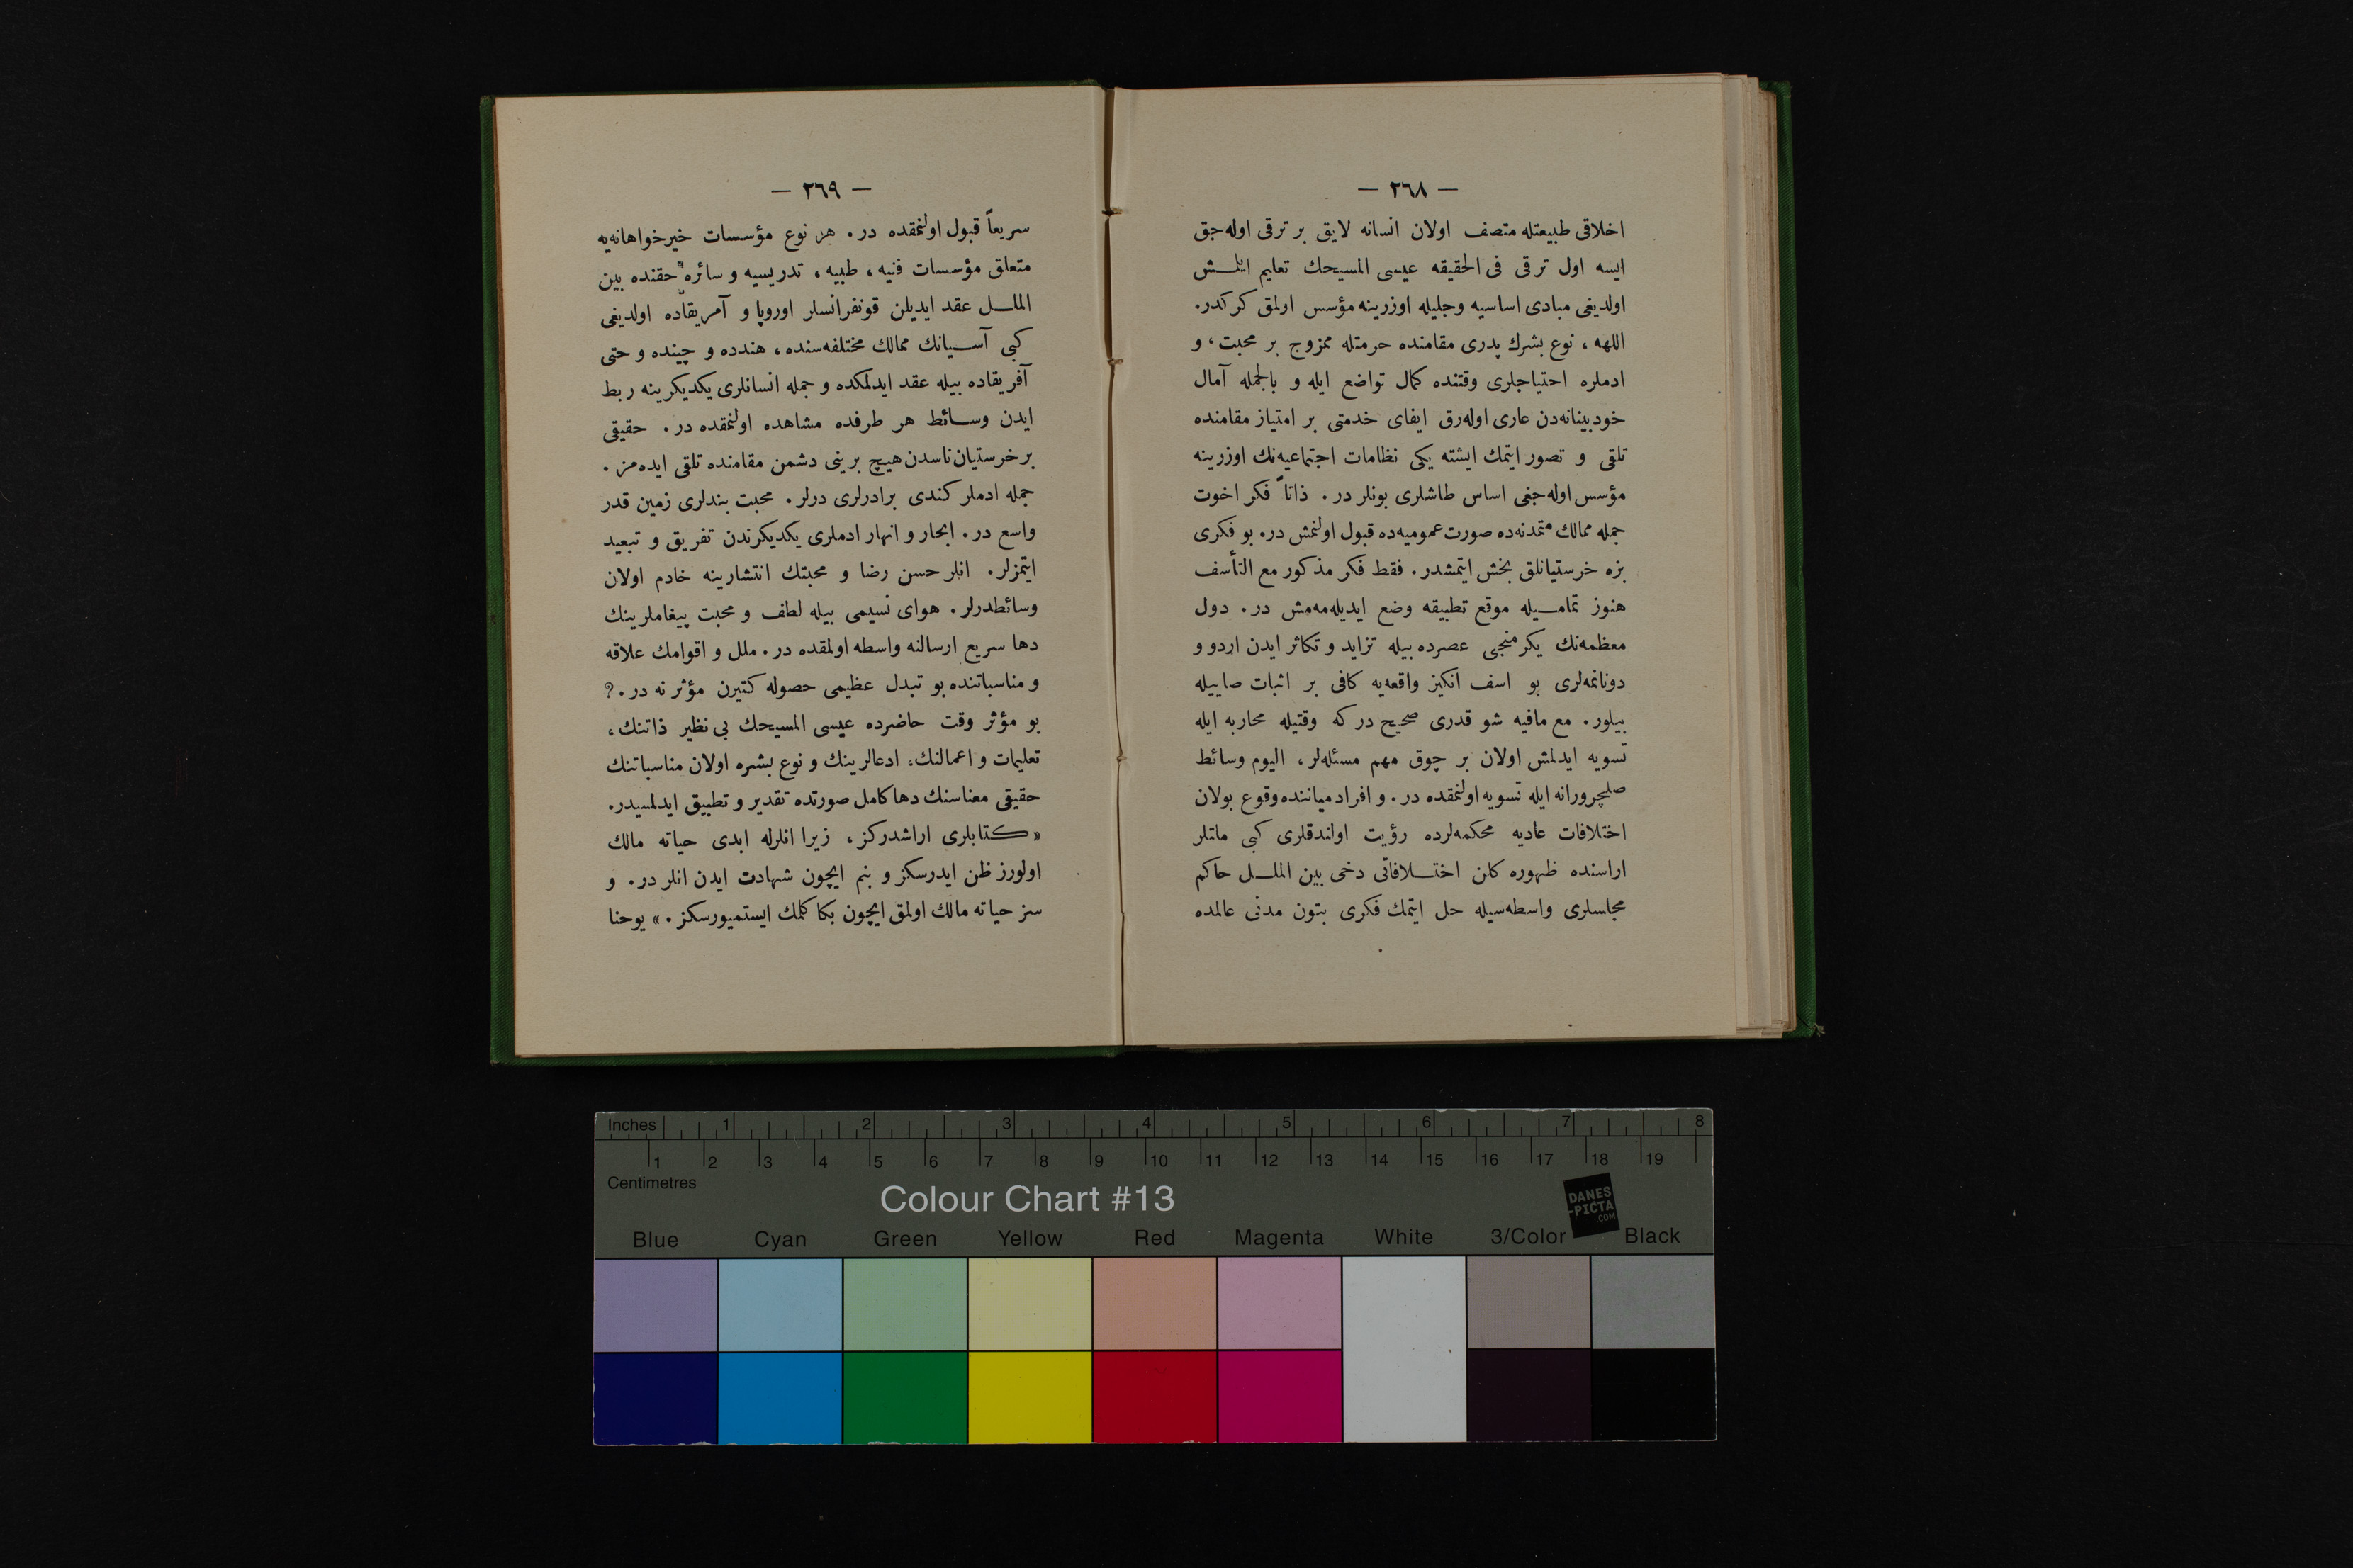 — ٢٦٨ —
اخلاقی طبیعتله متصف اولان انسانه لایق بر ترقی اوله‌جق
ایسه اول ترقی فی الحقیقه عیسی المسیحك تعلیم ایلمش
اولدیغی مبادی اساسیه وجلیله اوزرینه مؤسس اولمق كركدر.
اللهه ، نوع بشرك پدری مقامنده حرمتله ممزوج بر محبت ، و
ادملره احتیاجلری وقتنده كمال تواضع ایله و بالجمله آمال
خودبینانه‌دن عاری اوله‌رق ایفای خدمتی بر امتیاز مقامنده
تلقی و تصور ایتمك ایشته یكی نظامات اجتماعیه‌نك اوزرینه
مؤسس اوله‌جغی اساس طاشلری بونلر در . ذاتاً فكر اخوت
جمله ممالك متمدنه‌ده صورت عمومیه‌ده قبول اولنمش در. بو فكری
بزه خرستیانلق بخش ایتمشدر . فقط فكر مذكور مع التأسف
هنوز تمامیله موقع تطبیقه وضع ایدیله‌مه‌مش در . دول
معظمه‌نك یكرمنجی عصرده بیله تزاید و تكاثر ایدن اردو و
دونانمه‌لری بو اسف انكیز واقعه‌یه كافی بر اثبات صاییله
بیلور . مع مافیه شو قدری صحیح در كه وقتیله محاربه ایله
تسویه ایدلمش اولان بر چوق مهم مسئله‌لر ، الیوم وسائط
صلحپرورانه ایله تسویه اولنمقده در . و افراد میاننده وقوع بولان
اختلافات عادیه محكمه‌لرده رؤیت اولندقلری كبی ملتلر
اراسنده ظهوره كلن اختلافاتی دخی بین الملل حاكم
مجلسلری واسطه‌سیله حل ایتمك فكری بتون مدنی عالمده
— ٢٦٩ —
سریعاً قبول اولنمقده در . هر نوع مؤسسات خیرخواهانه‌یه
متعلق مؤسسات فنیه ، طبیه ، تدریسیه و سائره حقنده بین
الملل عقد ایدیلن قونفرانسلر اوروپا و آمریقاده اولدیغی
كبی آسیانك ممالك مختلفه‌سنده ، هندده و چینده و حتی
آفریقاده بیله عقد ایدلمكده و جمله انسانلری یكدیكرینه ربط
ایدن وسائط هر طرفده مشاهده اولنمقده در . حقیقی
بر خرستیان ناسدن هیچ برینی دشمن مقامنده تلقی ایده‌مز .
جمله ادملر كندی برادرلری درلر . محبت بندلری زمین قدر
واسع در . ابحار و انهار ادملری یكدیكرندن تفریق و تبعید
ایتمزلر . انلر حسن رضا و محبتك انتشارینه خادم اولان
وسائطدرلر . هوای نسیمی بیله لطف و محبت پیغاملرینك
دها سریع ارسالنه واسطه اولمقده در . ملل و اقوامك علاقه
و مناسباتنده بو تبدل عظیمی حصوله كتیرن مؤثر نه در .?
بو مؤثر وقت حاضرده عیسی المسیحك بی نظیر ذاتنك ،
تعلیمات و اعمالنك ، ادعالرینك و نوع بشره اولان مناسباتنك
حقیقی معناسنك دها كامل صورتده تقدیر و تطبیق ایدلمسیدر.
« كتابلری اراشدركز ، زیرا انلرله ابدی حیاته مالك
اولورز ظن ایدرسكز و بنم ایچون شهادت ایدن انلر در . و
سز حیاته مالك اولمق ایچون بكا كلمك ایستمیورسكز . » یوحنا
Inches 1 2 3 4 5 6 7 8
1 2 3 4 5 6 7 8 9 10 11 12 13 14 15 16 17 18 19
Centimetres
Colour Chart #13
DANES
-PICTA
.COM
Blue Cyan Green Yellow Red Magenta White 3/Color Black